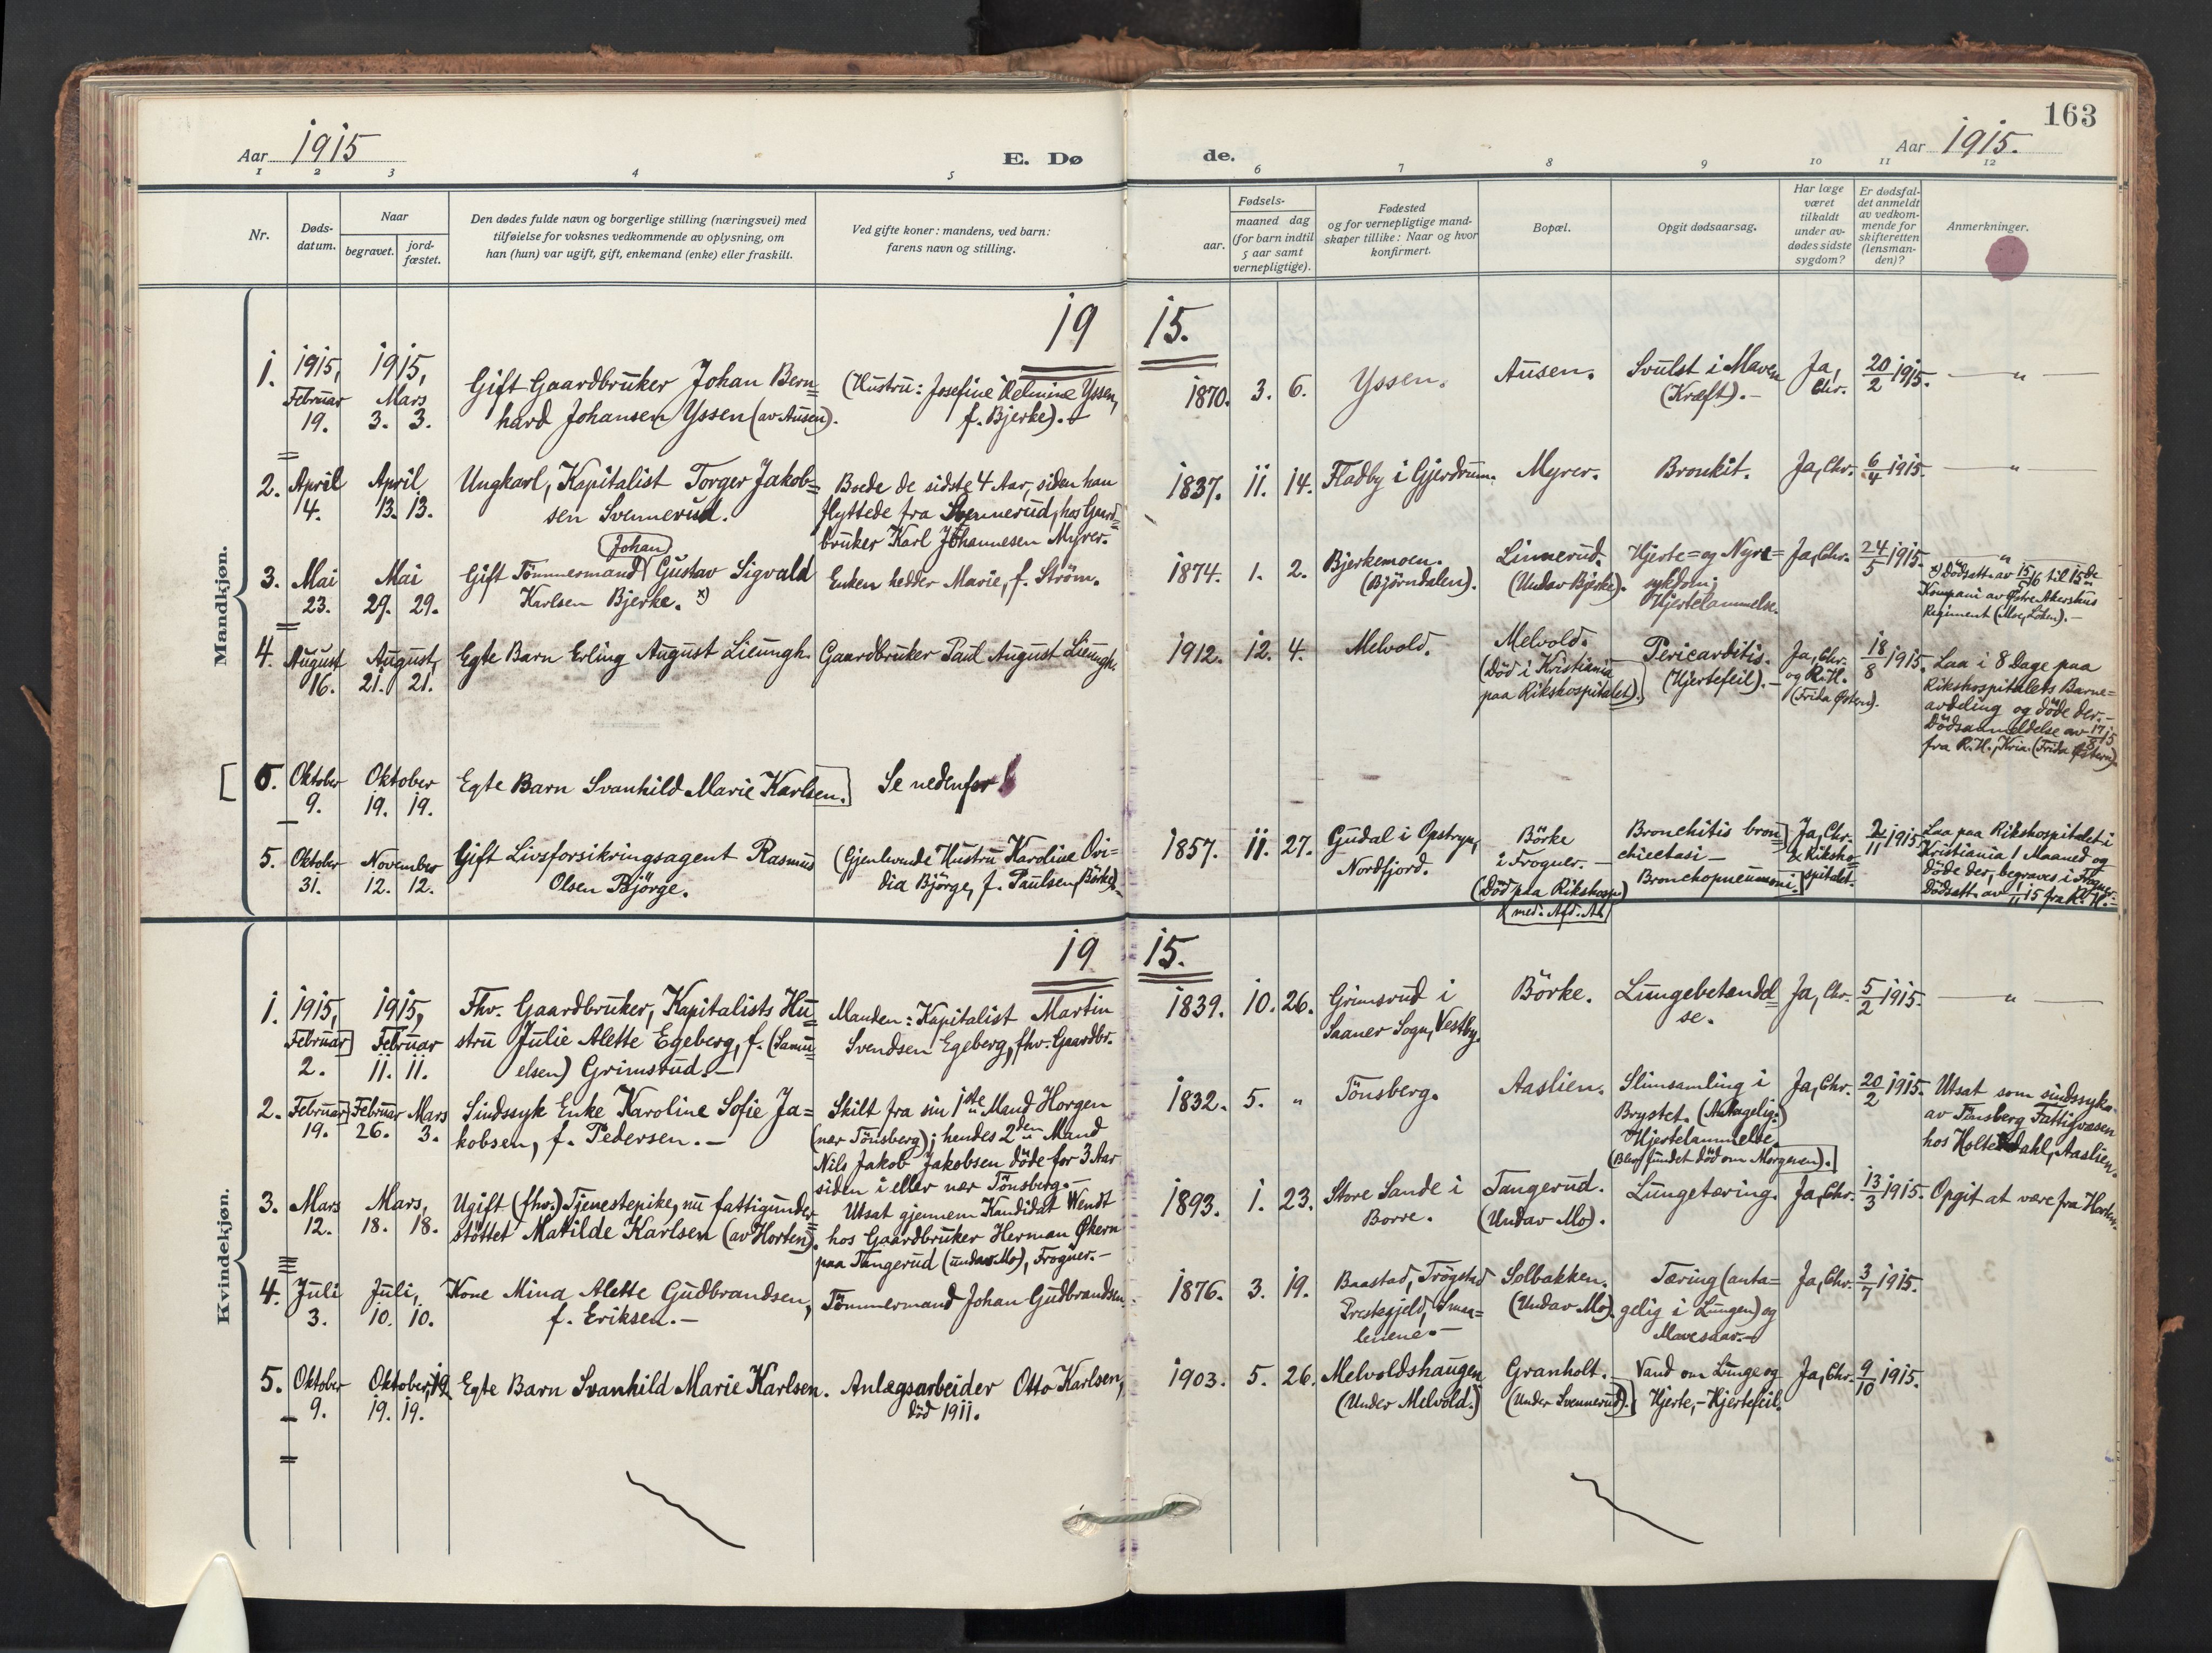 163
Aar 1915
E. Dø
de.
Aar 1915.
1 2 3 4 5 6 7 8 9 10 11 12
Nr.
Døds-
datum.
Naar
begravet.
jord-
fæstet.
Den dødes fulde navn og borgerlige stilling (næringsvei) med
tilføielse for voksnes vedkommende av oplysning, om
han (hun) var ugift, gift, enkemand (enke) eller fraskilt.
Ved gifte koner: mandens, ved barn:
farens navn og stilling.
Fødsels-
aar.
maaned dag
(for barn indtil
5 aar samt
vernepligtige).
Fødested
og for vernepligtige mand-
skaper tillike: Naar og hvor
konfirmert.
Bopæl.
Opgit dødsaarsag.
Har læge
været
tilkaldt
under av-
dødes sidste
sygdom?
Er dødsfal-
det anmeldt
av vedkom-
mende for
skifteretten
(lensman-
den)?
Anmerkninger.
Mandkjøn.
1915.
1.
1915,
Februar
19.
1915,
Mars
3. 3.
Gift Gaardbruker Johan Bern=
hard Johansen Yssen (av Ausen).
(Hustru: Josefine Helmine Yssen,
f. Bjerke).-
1870. 3. 6.
Yssen.
Ausen.
Svulst i Maven
(Kræft).-
Ja,
Chr.
20/2 1915.
— " —
2.
April
4.
April
13. 13.
Ungkarl, Kapitalist Torger Jakob=
sen Svennerud.
Boede de sidste 4 Aar, siden han
flyttede fra Svennerud, hos Gaard=
bruker Karl Johannesen Myrer.
1837. 11. 14.
Fladby i Gjerdrum.
Myrer.
Bronkit.
Ja, Chr.
6/4 1915.
— " —
3.
Mai
23.
Mai
29. 29.
(Johan)
Gift Tömmermand Gustav Sigvald
Karlsen Bjerke. x)
Enken hedder Marie, f. Ström.
1874. 1. 2.
Bjerkemoen.
(Björndalen).
Linnerud.
(Undav Bjerke).
Hjerte= og Nyre=
sykdom;
Hjertelammelse.
Ja, Chr.
24/5 1915.
"
x) Dödsatt. av 15/5 16 til 15de
Kompani av Østre Akershus
Regiment (Moe, Loken).-
4.
August
16.
August,
21. 21.
Egte Barn Erling August Lieungh.
Gaardbruker Paul August Lieungh.
1912. 12. 4.
Melvold.
Melvold.
(Död i Kristiania
paa Rikshospitalet).
Pericarditis.
(Hjertefeil).-
Ja, Chr.
og R.H.
(Frida Østern).
18/8 1915.
Laa i 8 Dage paa
Rikshospitalets Barne=
avdeling og döde der.-
Dödsanmeldelse av 17/8 15
fra R.H., Kria. (Frida Østern).
[5.
Oktober
9.
Oktober
19. 19.
Egte Barn Svanhild Marie Karlsen.]
Se nedenfor
5.
Oktober
31.
November
12. 12.
Gift Livsforsikringsagent Rasmus
Olsen Björge.
(Gjenlevende Hustru Karoline Ovi=
dia Björge, f. Paulsen, Börke).
1857. 11. 27.
Gudal i Opstryn,
Nordfjord.
Börke
i Frogner.-
(Död paa Rikshosp)
(med. Afd. A.)
Bronchitis bron
chiectasi -
Bronchopneumoni.
Ja, Chr.
& Riksho=
spitalet.
2/11 1915.
Laa paa Rikshospitalet i
Kristiania 1 Maaned og
döde der, begraves i Frogner.
Dödsatt. av 1/11 15 fra R.H.-
Kvindekjøn.
1915.
1.
1915,
Februar
2.
1915,
Februar
11. 11.
Fhv. Gaardbruker, Kapitalists Hu=
stru Julie Alette Egeberg, f. (Samu=
elsen) Grimsrud.-
Manden: Kapitalist Martin
Svendsen Egeberg, fhv. Gaardbr.
1839. 10. 26.
Grimsrud i
Saaner Sogn, Vestby.
Börke.
Lungebetændel=
se.
Ja, Chr.
5/2 1915.
— " —
2.
Februar
19.
Februar
26.
Mars
3.
Sindssyk Enke Karoline Sofie Ja=
kobsen, f. Pedersen.-
Skilt fra sin 1ste Mand Horgen
(nær Tönsberg); hendes 2den Mand
Nils Jakob Jakobsen döde for 3 Aar
siden i eller nær Tönsberg.-
1832. 5. "
Tönsberg.
Aaslien.
Slimsamling i
Brystet. (Antagelig:)
Hjertelammelse.
(Blev fundet död om Morgenen).
Ja, Chr.
20/2 1915.
Utsat som sindssyke
av Tönsberg Fattigvæsen
hos Holter Dahl, Aaslien.
3.
Mars
12.
Mars,
18. 18.
Ugift (fhv.) Tjenestepike, nu fattigunder=
stöttet Matilde Karlsen (av Horten).
Utsat gjennem Kandidat Wendt
hos Gaardbruker Herman Økern
paa Tangerud (undav Mo), Frogner.-
1893. 1. 23.
Store Sande i
Borre.
Tangerud.
(Undav Mo).
Lungetæring.
Ja, Chr.
13/3 1915.
Opgit at være fra Horten.
4.
Juli
3.
Juli,
10. 10.
Kone Mina Alette Gudbrandsen,
f. Eriksen.-
Tömmermand Johan Gudbrandsen.
1876. 3. 19.
Baastad, Trögstad
Prestegjeld, Smaa=
lenene.-
Solbakken.
(Undav Mo).
Tæring (anta=
gelig i Lungen) og
Mavesaar.-
Ja, Chr.
3/7 1915.
5.
Oktober
9.
Oktober,
19. 19.
Egte Barn Svanhild Marie Karlsen.
Anlægsarbeider Otto Karlsen,
död 1911.
1903. 5. 26.
Melvoldshaugen
(Under Melvold.)
Granholt.
(Under Svennerud).
Vand om Lunge og
Hjerte,- Hjertefeil.
Ja, Chr.
9/10 1915.